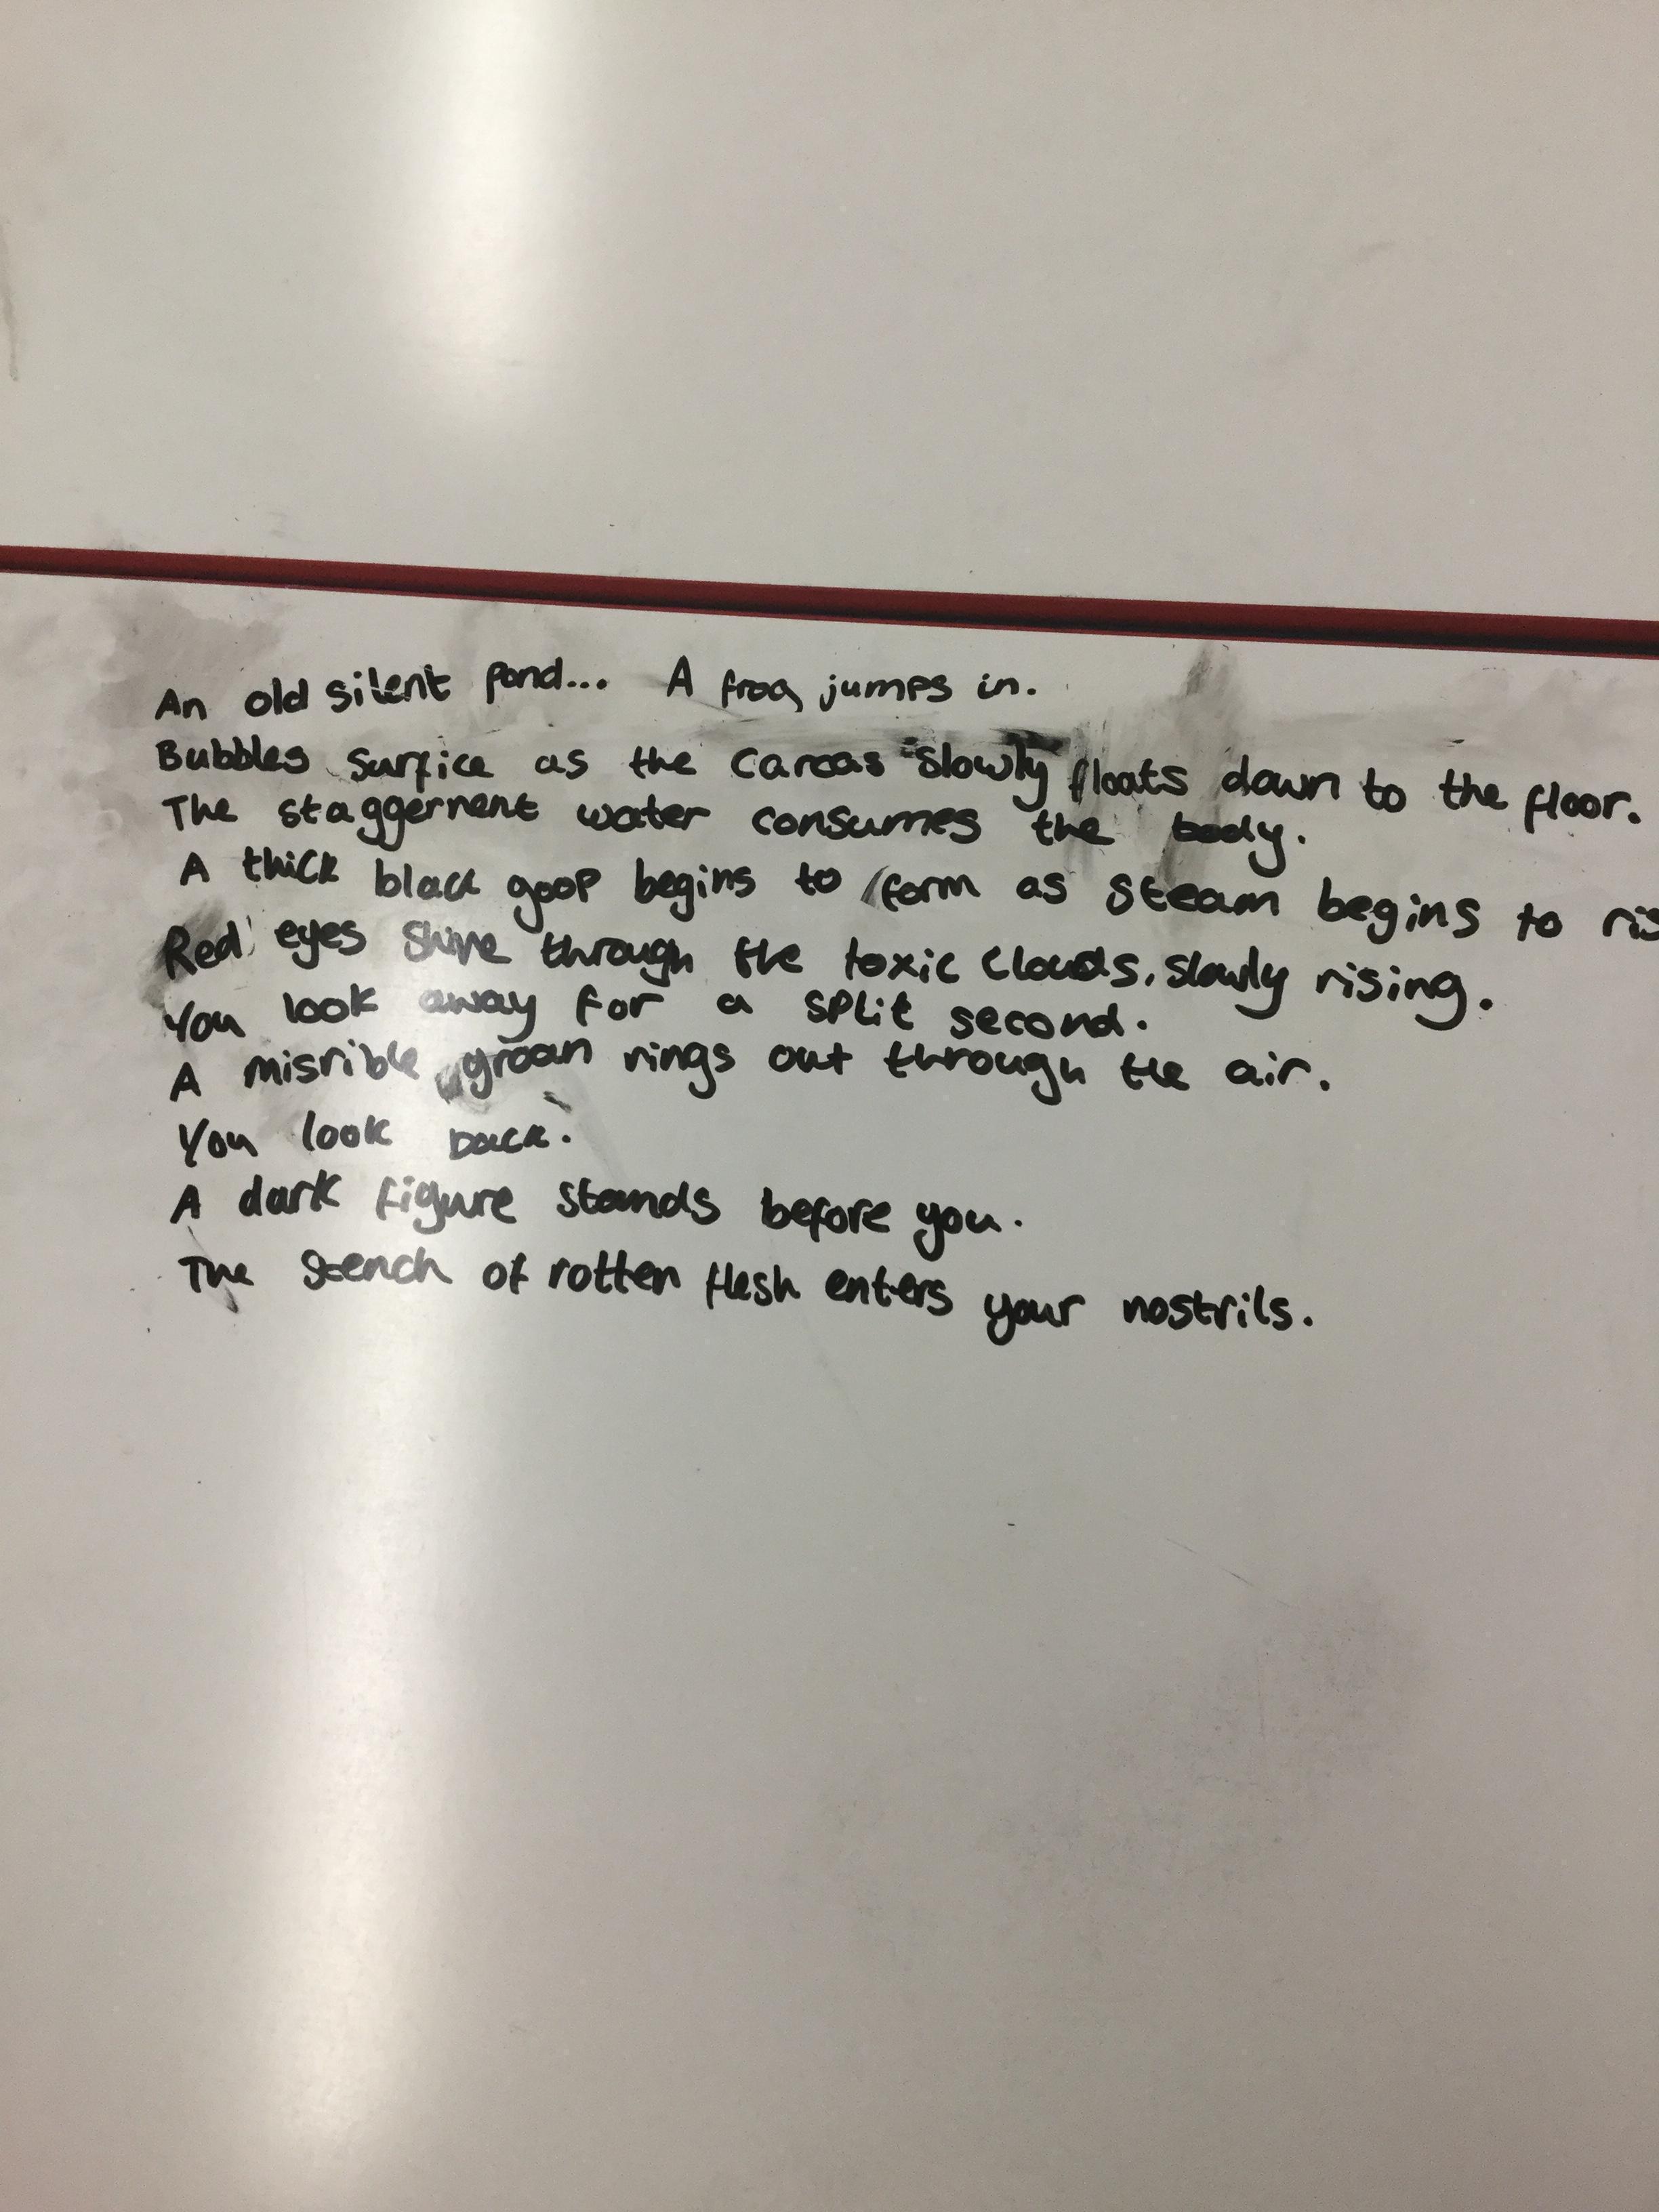 An old silent pond... A frog jumps in.
Bubbles surfice as the carcas slowly floats down to the floor.
The staggernent water consumes the body.
A thick black goop begins to form as steam begins to ris
Red eyes shine through the toxic clouds, slowly rising.
You look away for a split second.
A misrible groan rings out through the air.
You look back.
A dark figure stands before you.
The stench of rotten flesh enters your nostrils.